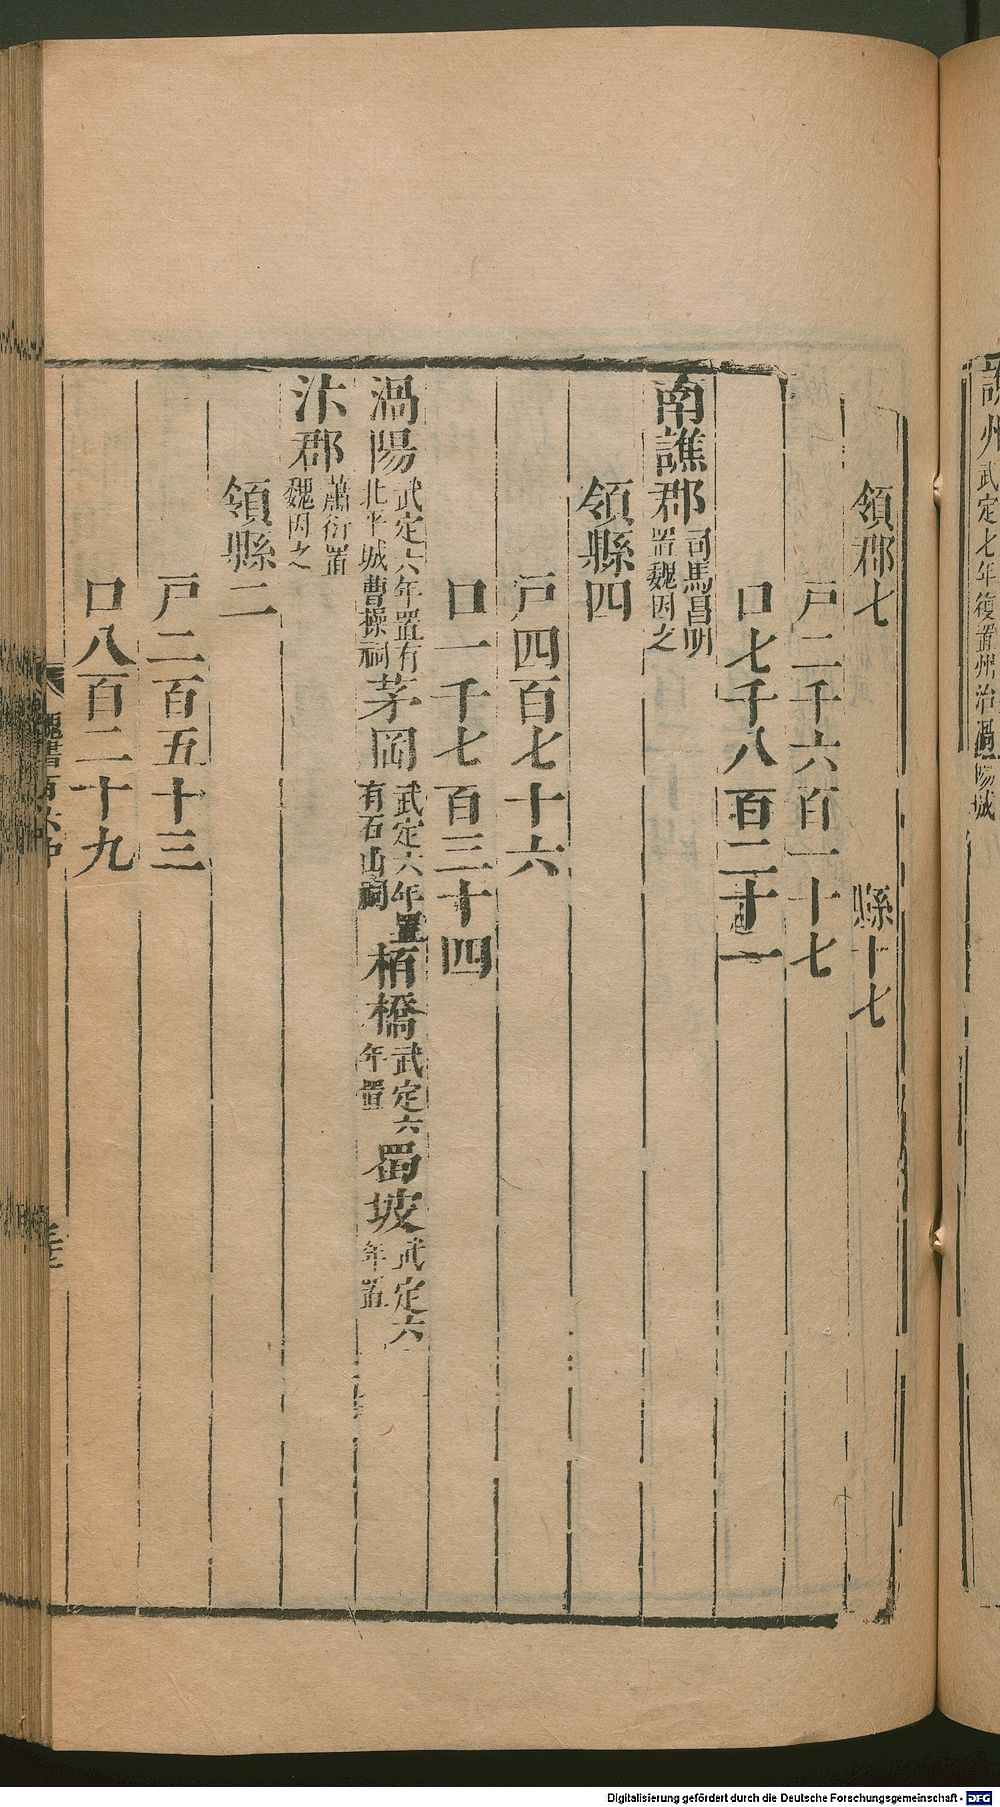 譙州武定七年復置州治渦陽城
領郡七 縣十七
戶二千六百一十七
口七千八百二十一
南譙郡司馬昌明置魏因之
領縣四
戶四百七十六
口一千七百三十四
渦陽武定六年置有北平城曹操祠茅岡武定六年置有石山祠栢橋武定六年置蜀坡武定六年置
汴郡蕭衍置魏因之
領縣二
戶二百五十三
口八百二十九
魏書
Digitalisierung gefördert durch die Deutsche Forschungsgemeinschaft - DFG